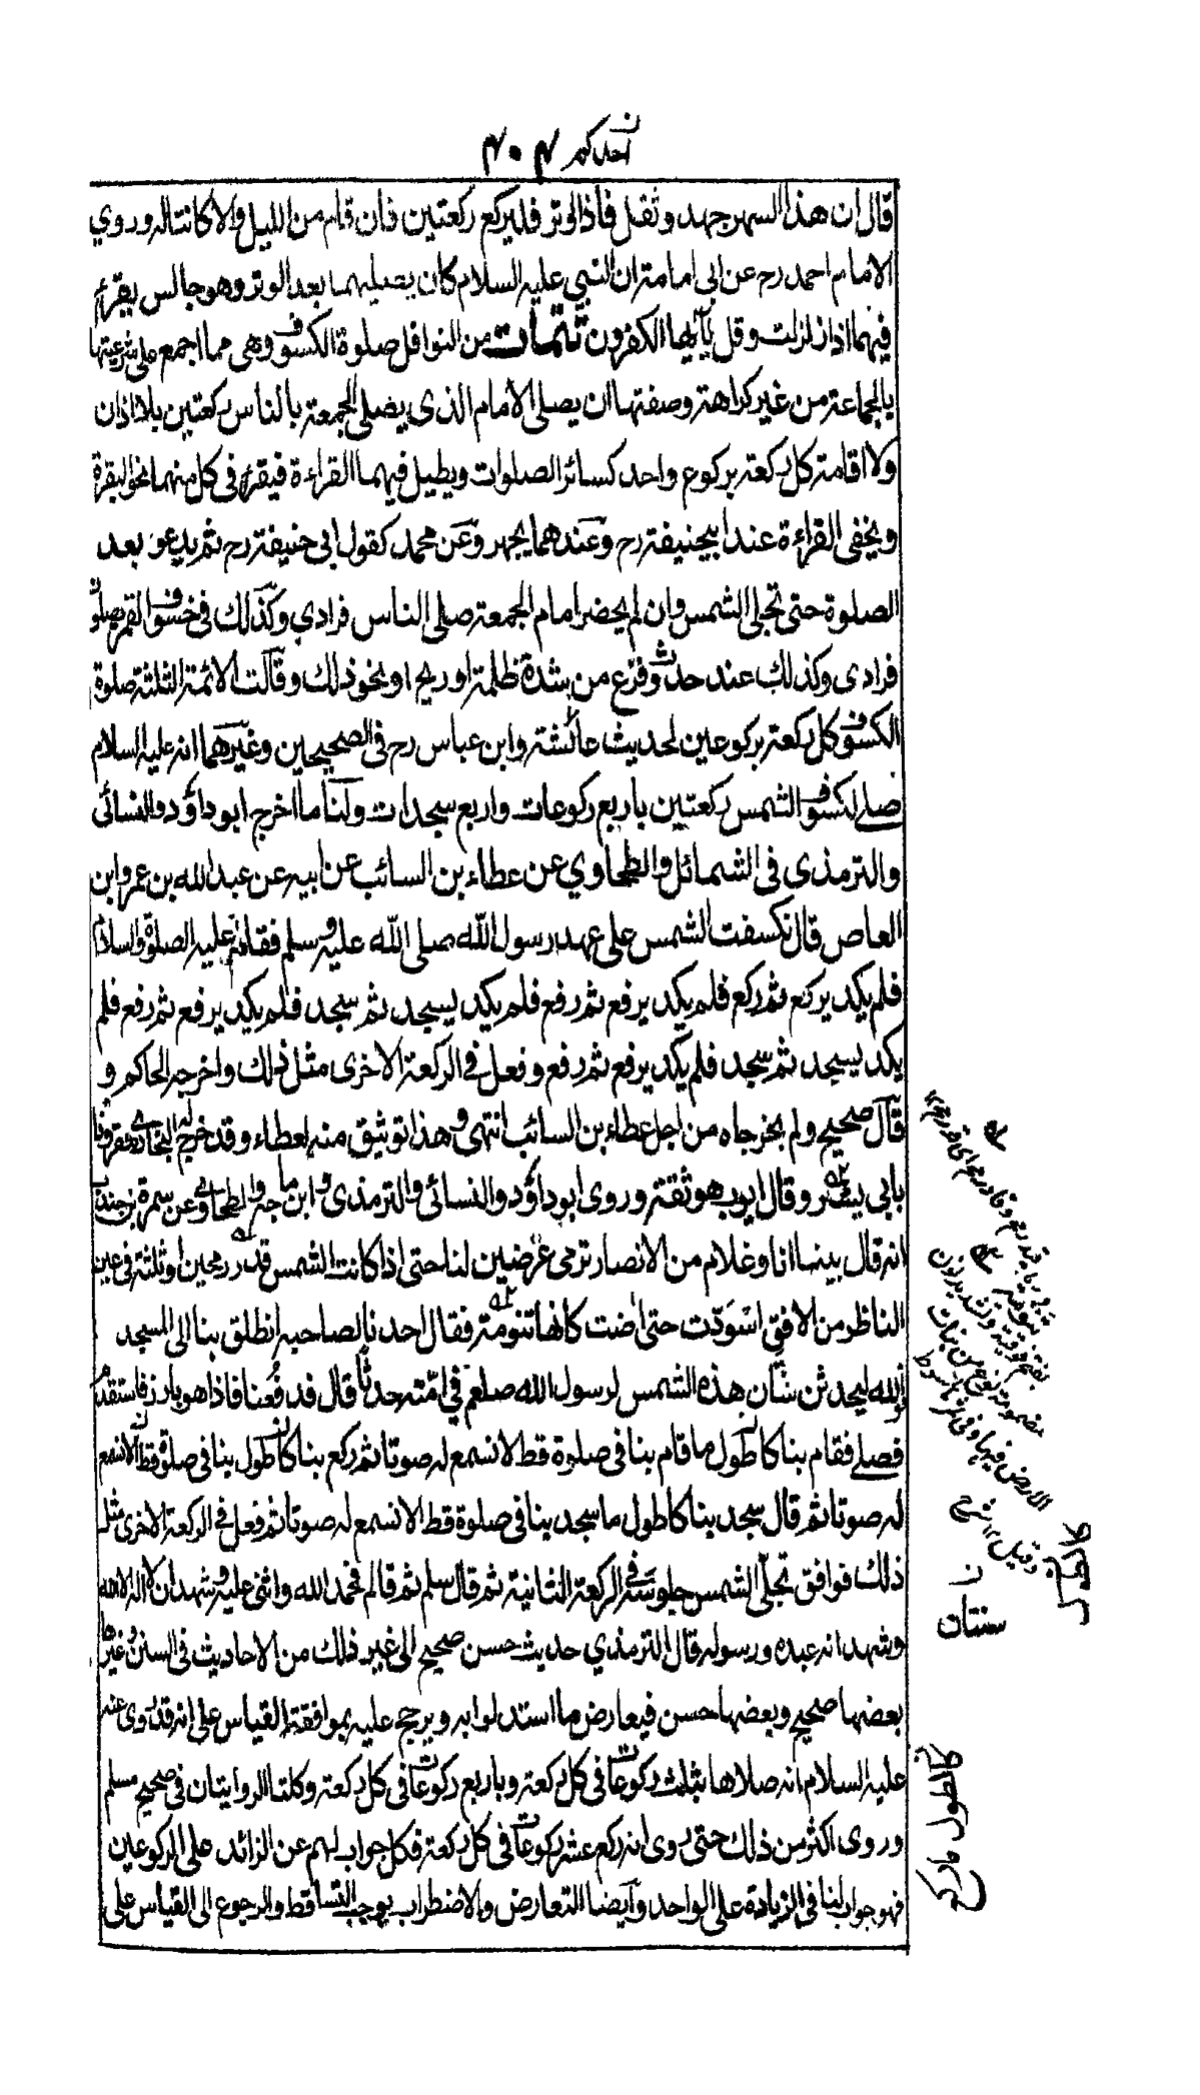 احدكم ۴۰۴
قال ان هذا السهر جهد وثقل فاذا اوتر فليركع ركعتين فان قام من الليل والا كانتا له وروي
الامام احمد رح عن ابي امامة ان النبي عليه السلام كان يصليهما بعد الوتر وهو جالس يقرء
فيهما اذا زلزلت وقل يأيها الكفرون تتمات من النوافل صلوة الكسوف وهى مما اجمع على شرعيتها
بالجماعة من غير كراهة وصفتها ان يصلى الامام الذى يصلى الجمعة بالناس ركعتين بلا اذان
ولا اقامة كل ركعة بركوع واحد كسائر الصلوات ويطيل فيهما القراءة فيقرء فى كل منهما نحو البقرة
ويخفى القراءة عند ابيحنيفة رح وعندهما يجهر وعن محمد كقول ابى حنيفة رح ثم يدعو بعد
الصلوة حتى تجلى الشمس وان لم يحضر امام الجمعة صلى الناس فرادي وكذلك فى خسوف القمر يصلون
فرادى وكذلك عند حدوث فزع من شدة ظلمة او ريح او نحو ذلك وقالت الائمة الثلثة صلوة
الكسوف كل ركعة بركوعين لحديث عائشة وابن عباس رح فى الصحيحين وغيرهما انه عليه السلام
صلى لكسوف الشمس ركعتين باربع ركوعات واربع سجدات ولنا ما اخرج ابوداؤد والنسائى
والترمذى فى الشمائل والطحاوي عن عطاء بن السائب عن ابيه عن عبدالله بن عمرو ابن
العاص قال نكسفت الشمس على عهد رسول الله صلى الله عليه وسلم فقام عليه الصلوة والسلام
فلم يكد يركع ثم ركع فلم يكد يرفع ثم رفع فلم يكد يسجد ثم سجد فلم يكد يرفع ثم رفع فلم
يكد يسجد ثم سجد فلم يكد يرفع ثم رفع وفعل فى الركعة الاخرى مثل ذلك واخرجه الحاكم و
قال صحيح ولم يخرجاه من اجل عطاء بن السائب انتهى وهذا توثيق منه لعطاء وقد خرج له البخارى مقرونا
بابي بشر وقال ايوب هو ثقة وروى ابوداؤد والنسائى والترمذى وابن ماجه والطحاوى عن سمرة بن جندب
انه قال بينما انا وغلام من الانصار نرمى غرضين لنا حتى اذا كانت الشمس قدر رمحين او ثلثة فى عين
الناظر من الافق اسودت حتى اضت كانها تنومة فقال احدنا لصاحبه انطلق بنا الى المسجد
فوالله ليحدثن شأن هذه الشمس لرسول الله صلعم فى امته حدثا قال فدفعنا فاذا هو بارز فاستقدم
فصلى فقام بنا كاطول ما قام بنا فى صلوة قط لا نسمع له صوتا ثم ركع بنا كاطول بنا فى صلوة قط لا نسمع
له صوتا ثم قال سجد بنا كاطول ما سجد بنا فى صلوة قط لا نسمع له صوتا ثم فعل فى الركعة الاخرى مثل
ذلك فوافق تجلى الشمس جلوسه فى الركعة الثانية ثم قال سلم ثم قال ثم فحمد الله واثنى عليه وشهد ان لا اله الا الله
وشهد انه عبده ورسوله قال الترمذي حديث حسن صحيح الى غير ذلك من الاحاديث فى السنن وغيرها
بعضها صحيح وبعضها حسن فيعارض ما استدلوا به ويرجح عليه بموافقة القياس على انه قد روى عنه
عليه السلام انه صلاها بثلث ركوعات فى كل ركعة وباربع ركوعات فى كل ركعة وكلتا الروايتان فى صحيح مسلم
وروى اكثر من ذلك حتى روى انه ركع عشر ركوعات فى كل ركعة فكل جواب لهم عن الزائد على الركوعين
فهو جواب لنا فى الزيادة على الواحد وايضا التعارض والاضطراب يوجب التساقط والرجوع الى القياس على
الارض فيها وفى
وقيل ۱۲ شرح
سنتان
كاطول ما ركع